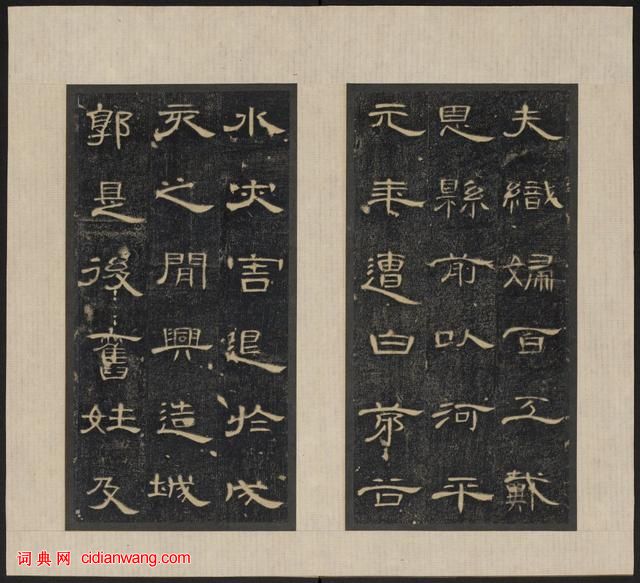 夫織婦百工戴
恩縣前以河平
元年遭白茅谷
水灾害退於戌
亥之閒興造城
郭是後舊姓及
词典网 cidianwang.com